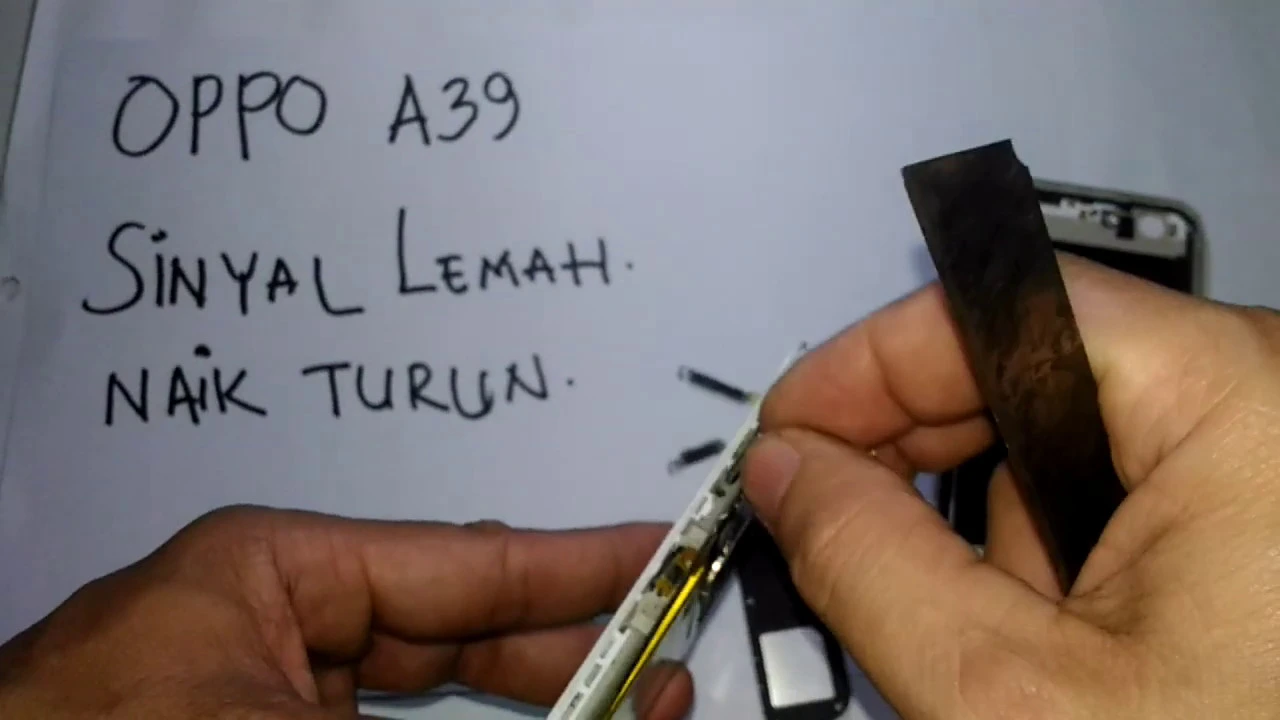 OPPO A39
SINYAL LEMAH.
NAIK TURUN.